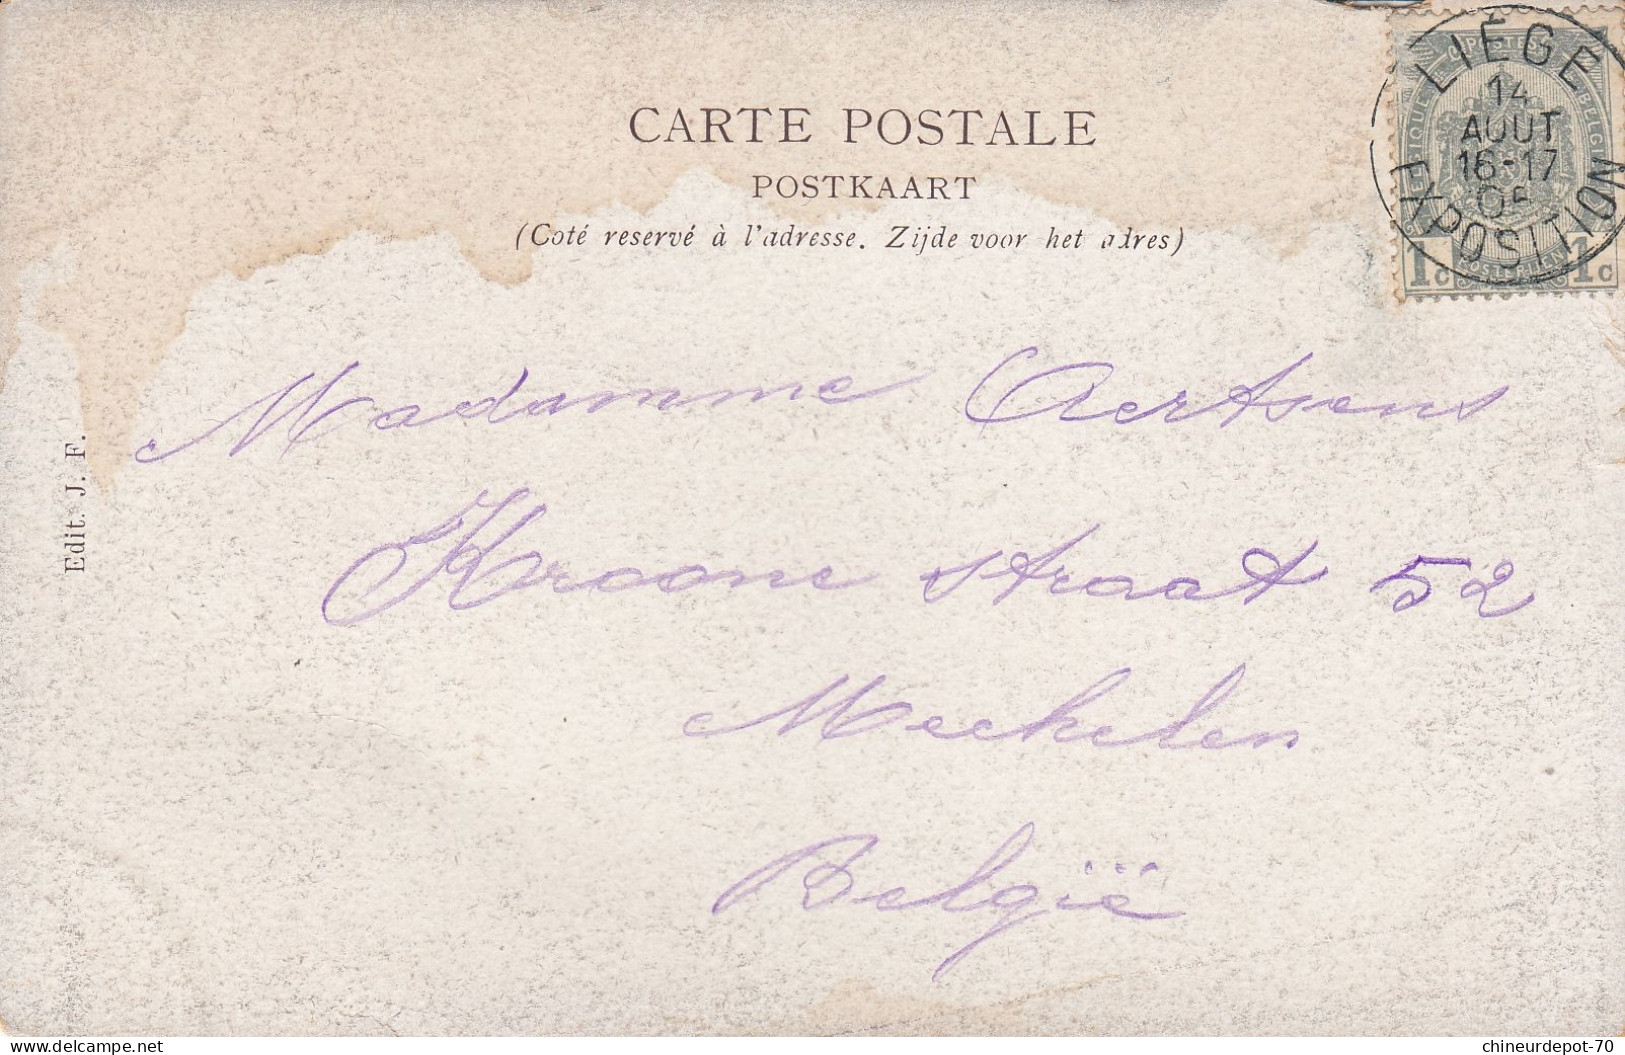 CARTE POSTALE
POSTKAART
(Coté reservé à l'adresse. Zijde voor het adres)
LIÉGE
14
AOUT
16-17
05
EXPOSITION
POSTES
BELGIQUE
BELGIE
POSTERIJEN
1c 1c
Madamme Aertsens
Kroone straat 52
Mechelen
België
Edit. J. F.
delcampe.net
chineurdepot-70